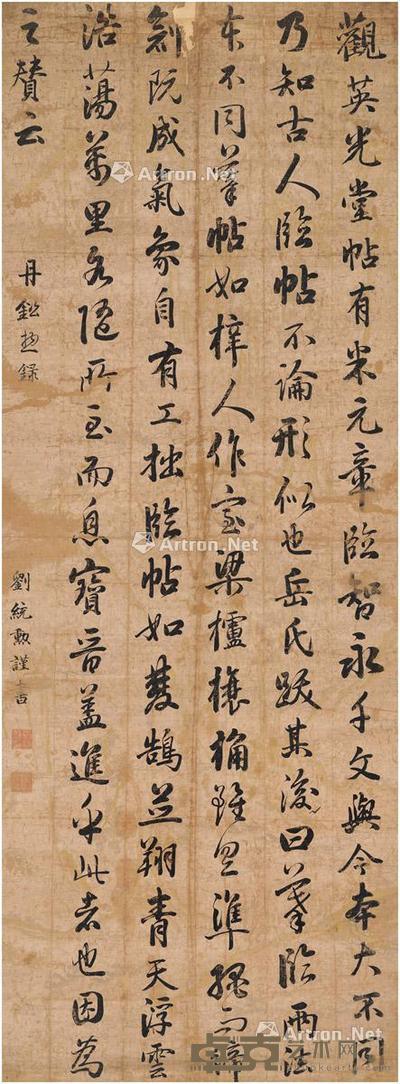 觀英光堂帖有米元章臨智永千文與今本大不同
乃知古人臨帖不論形似也岳氏跋其後曰摹臨兩法
本不同摹帖如梓人作室梁櫨榱桷雖具準繩而締
創既成氣象自有工拙臨帖如雙鵠並翔青天浮雲
浩蕩萬里各隨所至而息寶晉蓋進乎此者也因為
之贊云
丹鉛錄
劉統勳謹
Artron.Net
Artron.Net
Artron.Net
Artron.Net
Artron.Net
Artron.Net
卓克艺术网